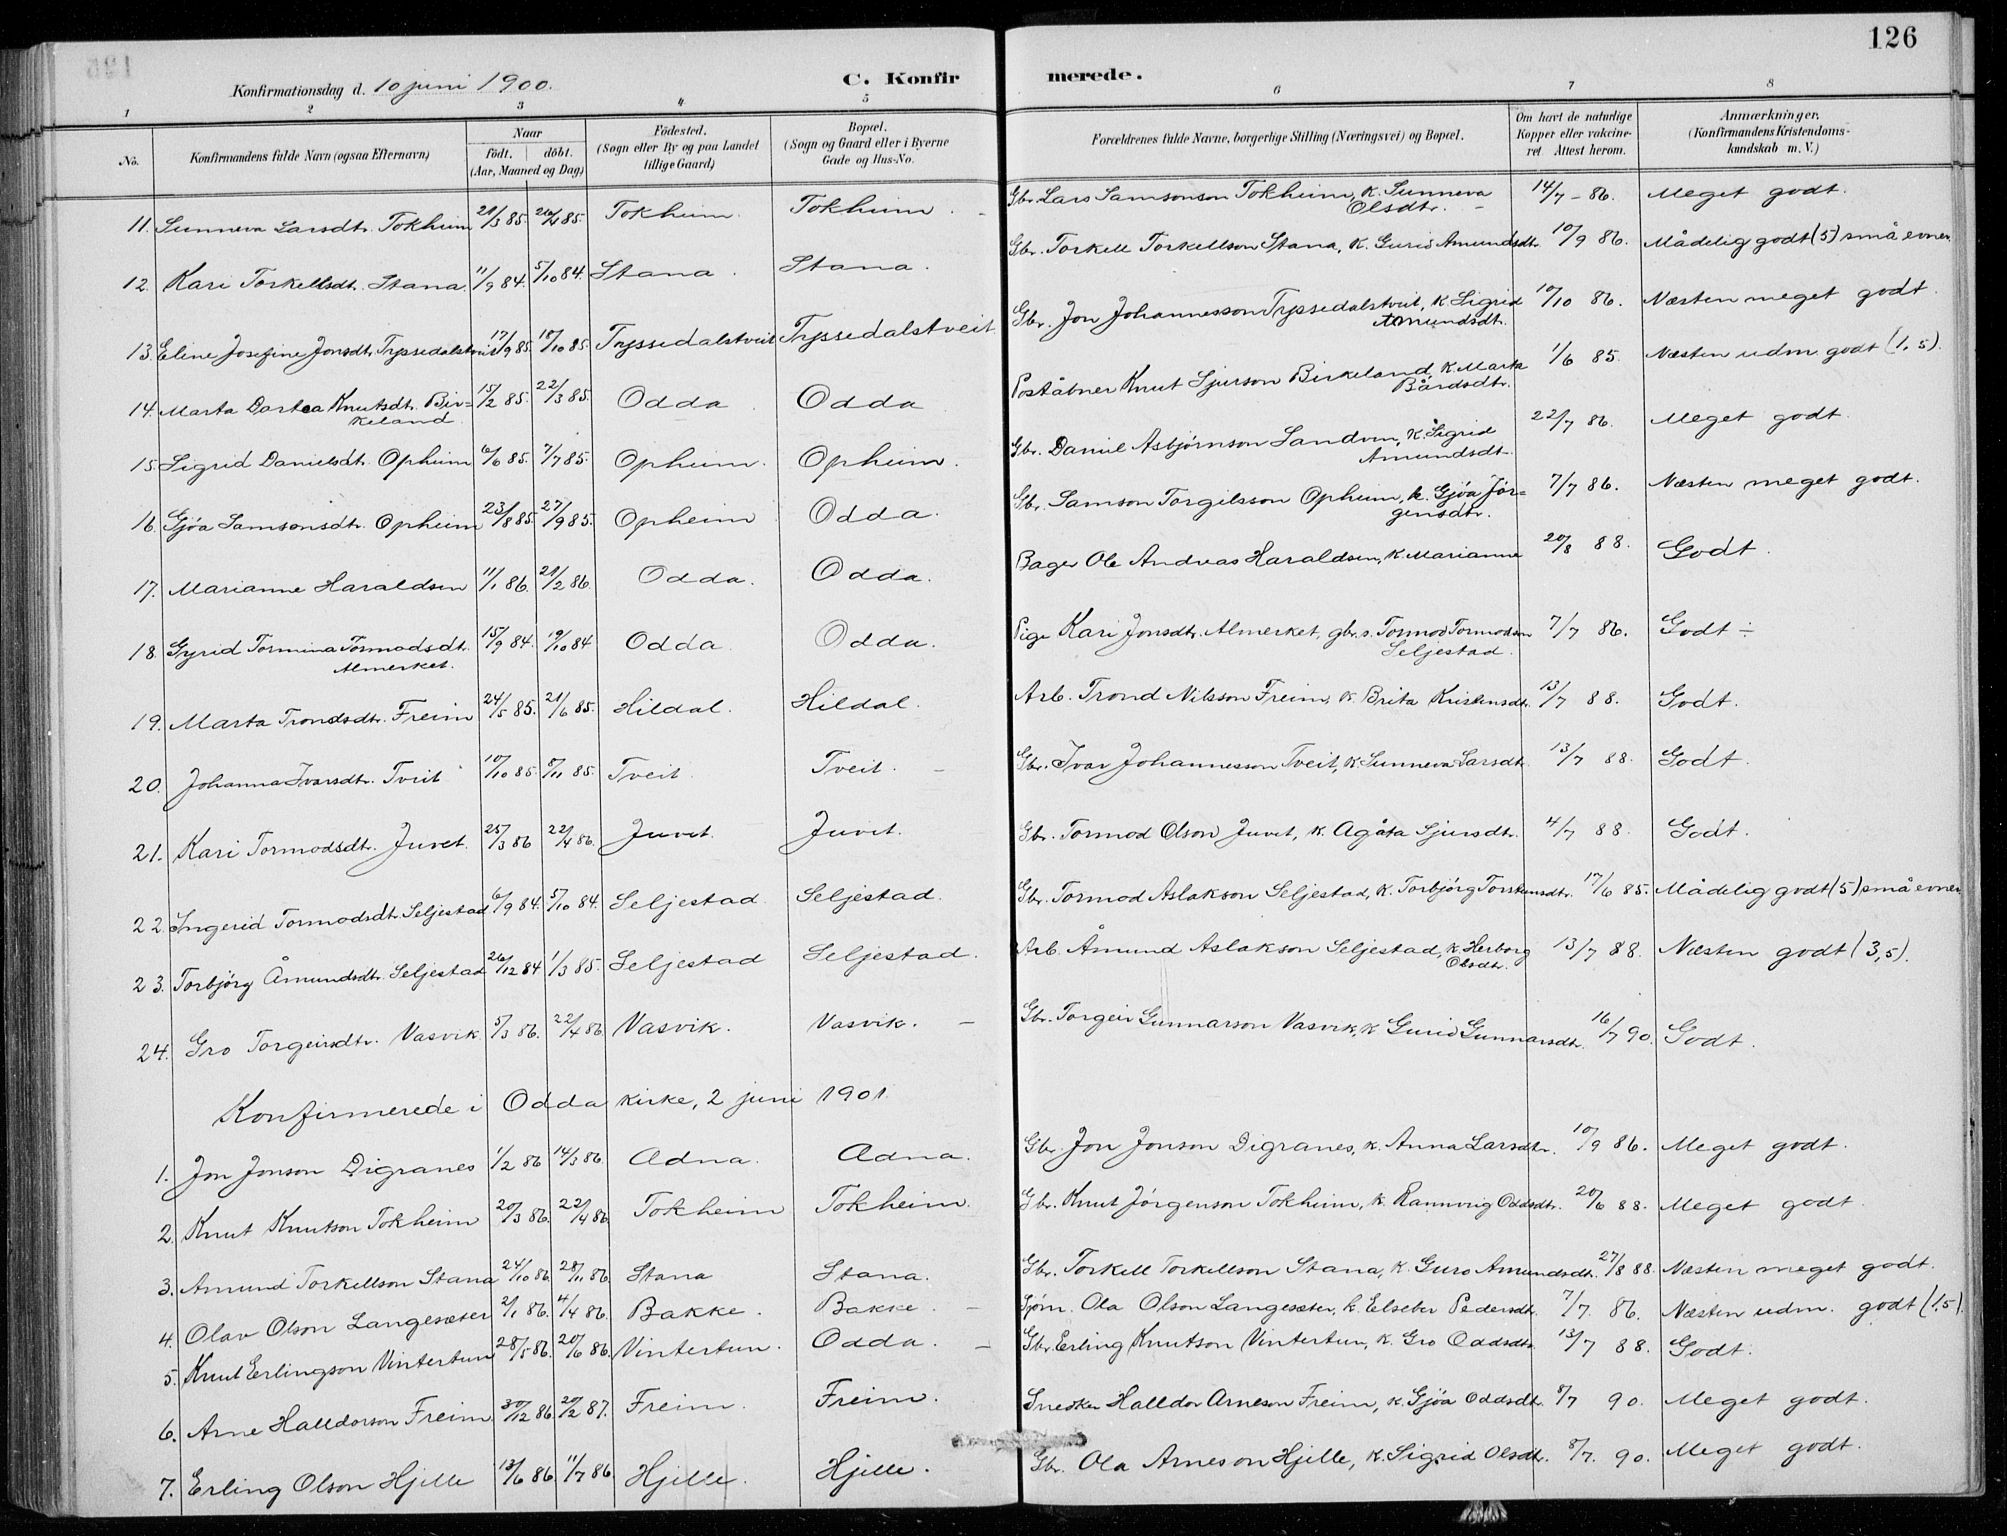 126
Konfirmationsdag d. 10 juni 1900. C. Konfirmerede.
1 2 3 4 5 6 7 8
No. Konfirmandens fulde Navn (ogsaa Efternavn) Naar født. døbt. (Aar, Maaned og Dag) Fødested. (Sogn eller By og paa Landet tillige Gaard) Bopæl. (Sogn og Gaard eller i Byerne Gade og Hus-No. Forældrenes fulde Navne, borgerlige Stilling (Næringsvei) og Bopæl. Om havt de naturlige Kopper eller vakcineret Attest herom. Anmærkninger, (Konfirmandens Kristendomskundskab m. V.)
11. Sunneva Larsdtr. Tokheim 21/3 85. 26/4 85. Tokheim. Tokheim. Gbr. Lars Samsonson Tokheim, k. Sunneva Olsdtr. 14/7 - 86. Meget godt.
12. Kari Torkellsdt. Stana 11/9 84. 5/10 84. Stana. Stana. Gbr. Torkell Torkellson Stana, k. Gurid Amundsdt. 10/9 86. Mådelig godt (5) små evner
13. Eline Josefine Jonsdt. Tryssedalstveit 17/9 85. 18/10 85. Tryssedalstveit Tryssedalstveit Gbr. Jon Johannesson Tryssedalstveit, k. Sigrid Amundsdt. 10/10 86. Næsten meget godt.
14. Marta Dortea Knutsdt. Birkeland 15/2 85. 22/3 85. Odda Odda Poståbner Knut Sjurson Birkeland, k. Marta Bårdsdt. 1/6 85. Næsten udm. godt (1,5).
15. Sigrid Danielsdt. Opheim 6/6 85. 7/7 85. Opheim. Opheim. Gbr. Daniel Asbjørnson Sandven, k. Sigrid Amundsdt. 22/7 86. Meget godt.
16. Gjøa Samsonsdt. Opheim 23/8 85. 27/9 85. Opheim Odda. Gbr. Samson Torgilsson Opheim, k. Gjøa Jørgensdtr. 7/7 86. Næsten meget godt.
17. Marianne Haraldsen 11/1 86. 21/2 86. Odda. Odda. Bager Ole Andreas Haraldsen, k. Marianne 20/8 88. Godt.
18. Gyrid Tormina Tormodsdt. Almerket. 15/9 84. 19/10 84 Odda Odda. Pige Kari Jonsdt. Almerket, gbr.s. Tormod Tormodson Seljestad. 7/7 86. Godt ÷
19. Marta Trondsdt. Freim 24/5 85. 21/6 85. Hildal. Hildal. Arb. Trond Nilsson Freim, k. Brita Kristensdt. 13/7 88. Godt.
20. Johanna Ivarsdtr. Tveit 10/10 85. 8/11 85. Tveit. Tveit. Gbr. Ivar Johannesson Tveit, k. Sunneva Larsdt. 13/7 88. Godt.
21. Kari Tormodsdt. Juvet. 25/3 86 22/4 86. Juvet. Juvet. Gbr. Tormod Olson Juvet, k. Agåta Sjursdt. 4/7 88. Godt.
22. Ingerid Tormodsdt. Seljestad 6/9 84. 5/10 84. Seljestad Seljestad. Gbr. Tormod Aslakson Seljestad, k. Torbjørg Torsteinsdtr. 17/6 85. Mådelig godt (5) små evner
23. Torbjørg Åmundsdt. Seljestad 26/12 84 1/3 85. Seljestad Seljestad. Arb. Åmund Aslakson Seljestad, k. Herborg Olsdt. 13/7 88. Næsten godt (3,5).
24. Gro Torgeirsdtr. Vasvik. 5/3 86. 22/4 86 Vasvik. Vasvik. Gbr. Torgeir Gunnarson Vasvik, k. Gurid Gunnarsdt. 16/7 90. Godt.
Konfirmerede i Odda kirke, 2 juni 1901.
1. Jon Jonson Digranes 1/2 86 14/3 86. Adna. Adna. Gbr. Jon Jonson Digranes, k. Anna Larsdtr. 10/9 86. Meget godt.
2. Knut Knutson Tokheim 20/3 86. 22/4 86. Tokheim Tokheim. Gbr. Knut Jørgenson Tokheim, k. Rannveig Oddsdtr. 20/6 88. Meget godt.
3. Amund Torkellson Stana 24/10 86. 28/11 86. Stana Stana. Gbr. Torkell Torkellson Stana, k. Guro Amundsdt. 27/8 88. Næsten meget godt.
4. Olav Olson Langesæter 2/1 86. 4/4 86. Bakke. Bakke. Sjøm. Ola Olson Langesæter, k. Elseber Pedersdt. 7/7. 86. Næsten udm. godt (1,5).
5. Knut Erlingson Vintertun 28/5 86. 20/6 86. Vintertun. Odda. Gbr. Erling Knutson Vintertun, k. Gro Oddsdtr. 13/7 88. Godt.
6. Arne Halldorson Freim 30/12 86. 20/2 87. Freim. Freim. Snedker Halldor Arneson Freim, k. Gjøa Oddsdt. 8/7 90. Meget godt.
7. Erling Olson Hjelle 13/6 86. 11/7 86 Hjelle. Hjelle. Gbr. Ola Arneson Hjelle, k. Sigrid Olsdt. 8/7. 90. Meget godt.